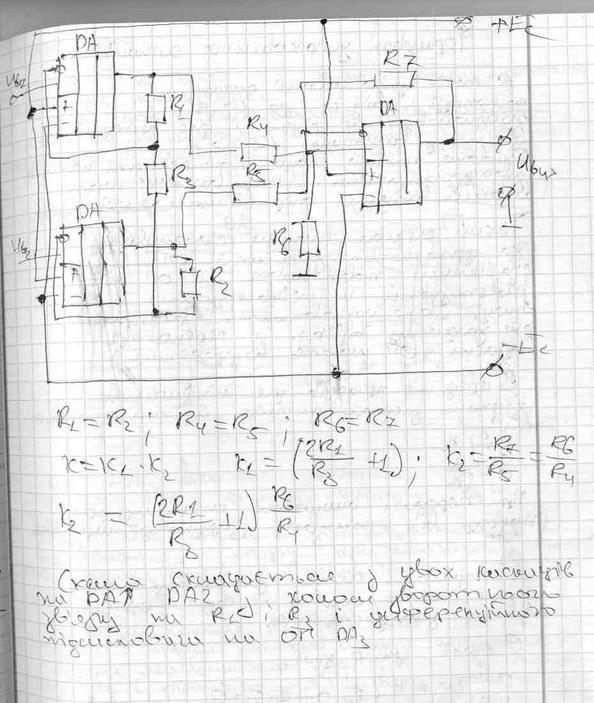 +Ec
DA
R7
Uвх
R1
R4
DA
R3
R5
Uвих
DA
Uвх
R6
R2
-Ec
R1 = R2 ; R4 = R5 ; R6 = R7
K = K1 · K2 K1 = (2R1/R3 + 1) ; K2 = R7/R5 = R6/R4
K2 = (2R1/R3 + 1) R6/R4
Схема складається з двох каскадів
на DA1 DA2 з колом зворотнього
звязку на R1 і R3 і диференційного
підсилювача на ОП DA3